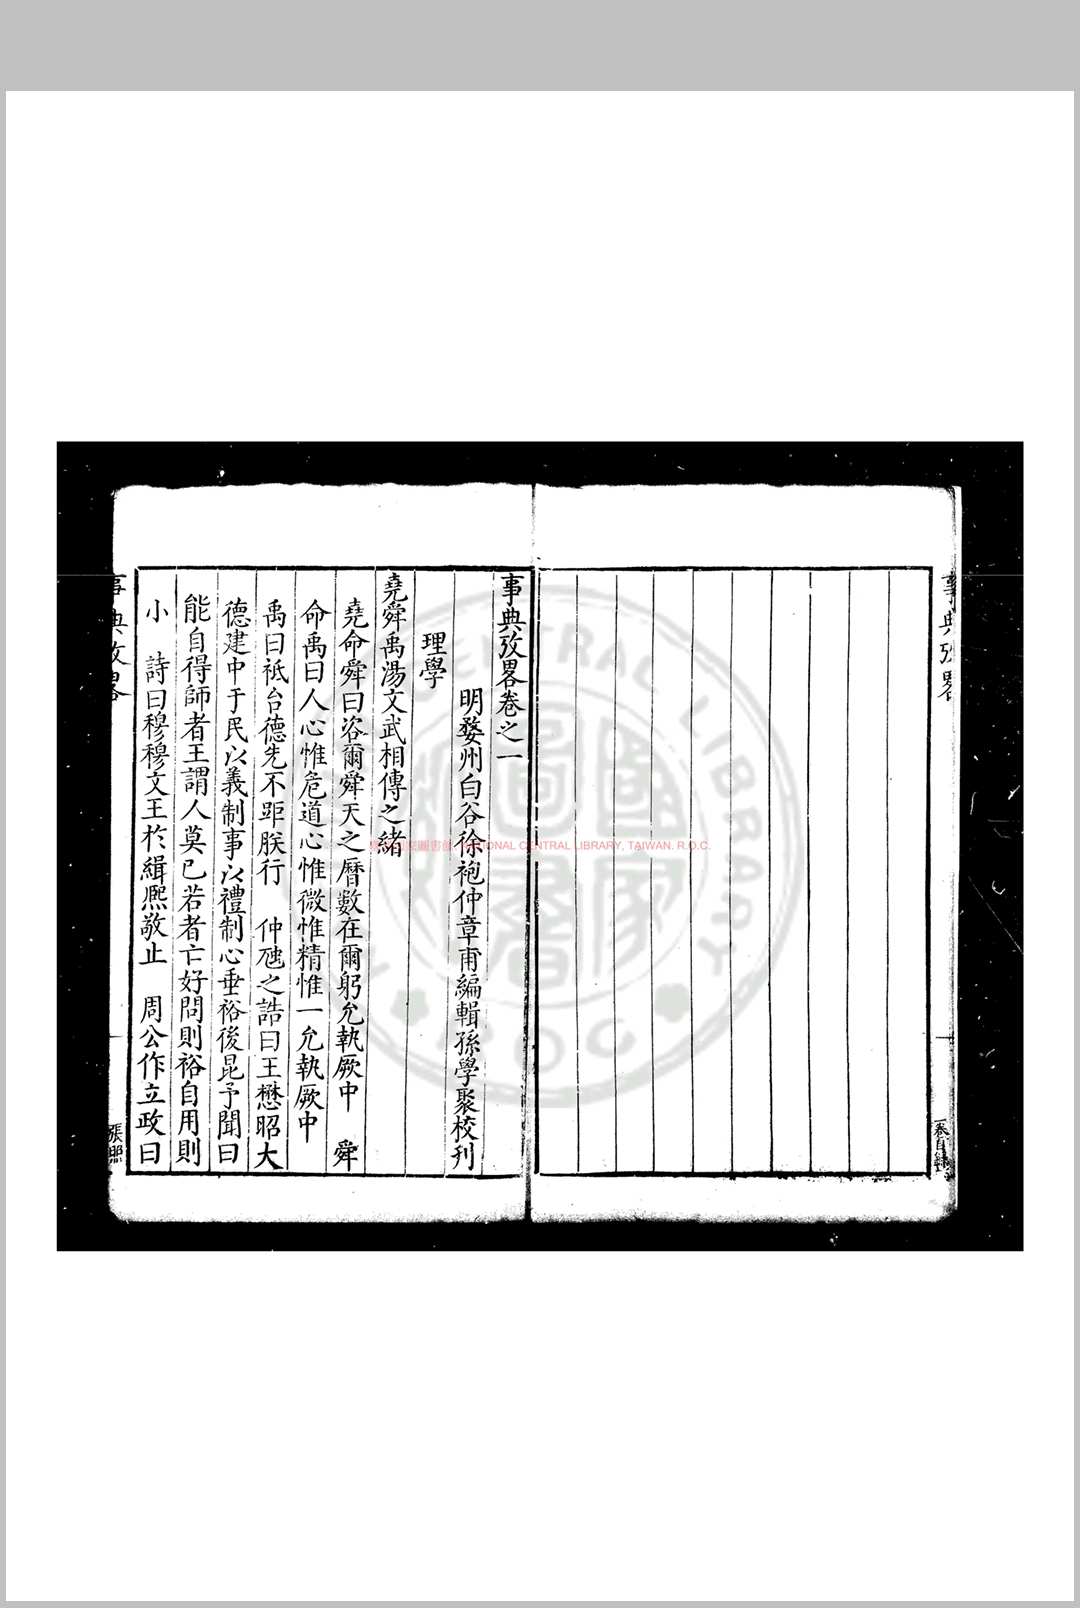 事典攷畧
卷目錄
事典攷畧卷之一
明婺州白谷徐袍仲章甫編輯孫學聚校刊
理學
堯舜禹湯文武相傳之緒
堯命舜曰咨爾舜天之曆數在爾躬允執厥中　舜
命禹曰人心惟危道心惟微惟精惟一允執厥中
禹曰祗台德先不距朕行　仲虺之誥曰王懋昭大
德建中于民以義制事以禮制心垂裕後昆予聞曰
能自得師者王謂人莫已若者亡好問則裕自用則
小　詩曰穆穆文王於緝熈敬止　周公作立政曰
事典攷畧
張熈
NATIONAL CENTRAL LIBRARY, TAIWAN. R.O.C.